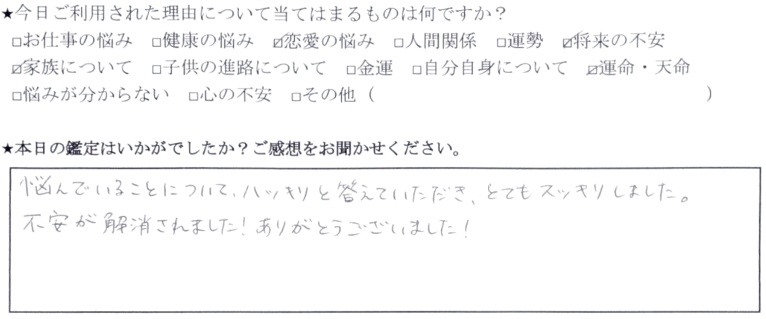 ★今日ご利用された理由について当てはまるものは何ですか？
□お仕事の悩み □健康の悩み ☑恋愛の悩み □人間関係 □運勢 ☑将来の不安
☑家族について □子供の進路について □金運 □自分自身について ☑運命・天命
□悩みが分からない □心の不安 □その他（ ）
★本日の鑑定はいかがでしたか？ご感想をお聞かせください。
悩んでいることについて、ハッキリと答えていただき、とてもスッキリしました。
不安が解消されました！ありがとうございました！